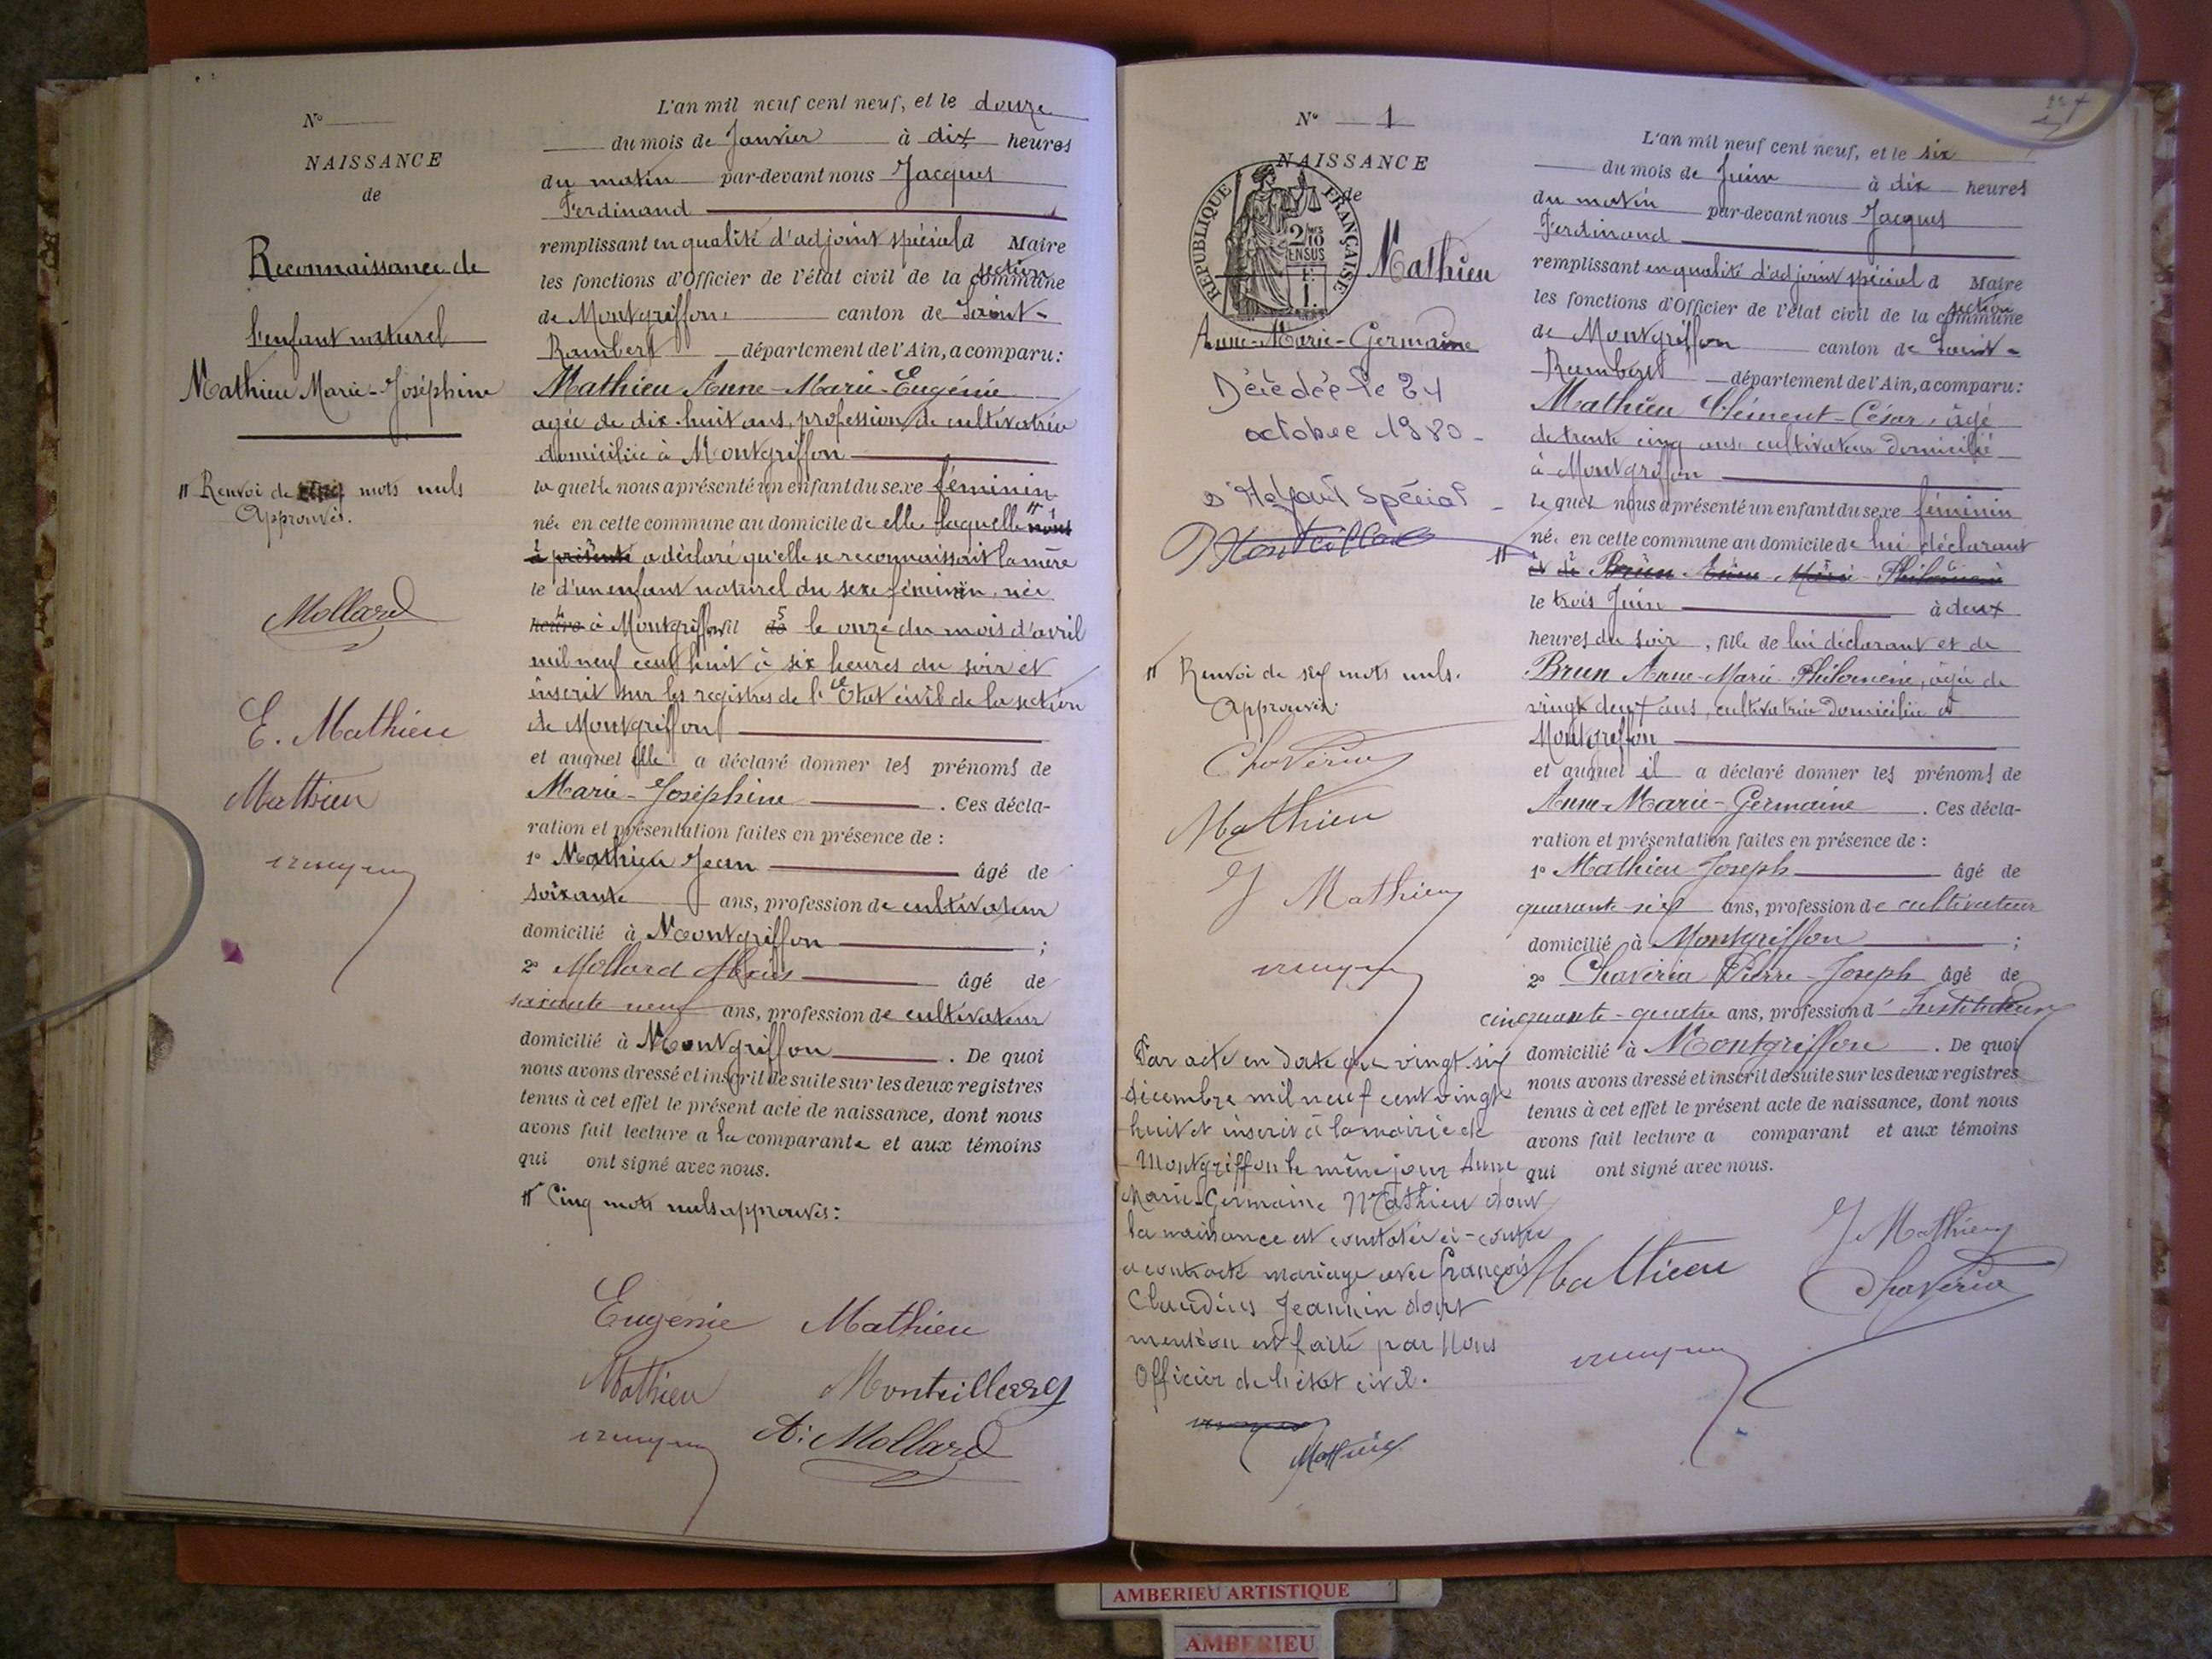 N°
NAISSANCE
de
Reconnaissance de
l'enfant naturel
Mathieu Marie-Joséphine
Renvoi de mots nuls
Approuvés.
Mollard
E. Mathieu
Mathieu
L'an mil neuf cent neuf, et le douze
du mois de Janvier à dix heures
du matin par-devant nous Jacques
Ferdinand
remplissant en qualité d'adjoint spécial d Maire
les fonctions d'Officier de l'état civil de la commune section
de Montgriffon canton de Saint-
Rambert département de l'Ain, a comparu:
Mathieu Anne-Marie-Eugénie
agée de dix-huit ans, profession de cultivatrice
domiciliée à Montgriffon
la quelle nous a présenté un enfant du sexe féminin
née en cette commune au domicile de elle laquelle nous
a présenté a déclaré qu'elle se reconnaissait la mère
le d'un enfant naturel du sexe féminin, née
heure à Montgriffon il de le onze du mois d'avril
mil neuf cent huit à six heures du soir et
inscrit sur les registres de l'Etat civil de la section
de Montgriffon
et auquel elle a déclaré donner les prénoms de
Marie-Joséphine . Ces décla-
ration et présentation faites en présence de :
1° Mathieu Jean âgé de
soixante ans, profession de cultivateur
domicilié à Montgriffon ;
2° Mollard Alexis âgé de
soixante neuf ans, profession de cultivateur
domicilié à Montgriffon . De quoi
nous avons dressé et inscrit de suite sur les deux registres
tenus à cet effet le présent acte de naissance, dont nous
avons fait lecture a la comparante et aux témoins
qui ont signé avec nous.
Cinq mots nuls approuvés:
Eugenie Mathieu
Mathieu Monteillard
A. Mollard
N° 1
NAISSANCE
de
RÉPUBLIQUE FRANÇAISE
2/10
EN SUS
Mathieu
Anne-Marie-Germaine
Décédée le 24
octobre 1980
Renvoi de mots nuls.
Approuvés.
Chavéria
Mathieu
J Mathieu
Par acte en date du vingt-six
décembre mil neuf cent vingt
huit et inscrit à la mairie de
Montgriffon le même jour Anne
Marie-Germaine Mathieu dont
la naissance est constatée ci-contre
a contracté mariage avec François
Claudius Jeannin dont
mention est faite par Nous
Officier de l'état civil.
Mathieu
L'an mil neuf cent neuf, et le six
du mois de Juin à dix heures
du matin par-devant nous Jacques
Ferdinand
remplissant en qualité d'adjoint spécial d Maire
les fonctions d'Officier de l'état civil de la commune section
de Montgriffon canton de Saint-
Rambert département de l'Ain, a comparu:
Mathieu Clément-César, âgé
de trente cinq ans, cultivateur domicilié
à Montgriffon
le quel nous a présenté un enfant du sexe féminin
née en cette commune au domicile de lui déclarant
et de Brun Anne-Marie-Philomène
le trois Juin à deux
heures du soir, fille de lui déclarant et de
Brun Anne-Marie-Philomène, âgée de
vingt deux ans, cultivatrice domiciliée à
Montgriffon
et auquel il a déclaré donner les prénoms de
Anne-Marie-Germaine . Ces décla-
ration et présentation faites en présence de :
1° Mathieu Joseph âgé de
quarante-six ans, profession de cultivateur
domicilié à Montgriffon ;
2° Chavéria Pierre-Joseph âgé de
cinquante-quatre ans, profession d' Instituteur
domicilié à Montgriffon . De quoi
nous avons dressé et inscrit de suite sur les deux registres
tenus à cet effet le présent acte de naissance, dont nous
avons fait lecture a comparant et aux témoins
qui ont signé avec nous.
J Mathieu
Mathieu
Chavéria
AMBERIEU ARTISTIQUE
AMBERIEU